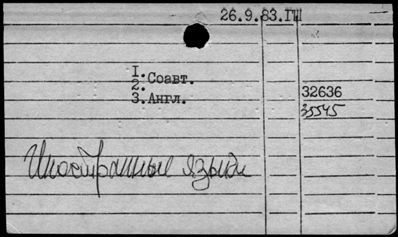 26.9.83.ГШ
1.
Соавт.
2.
3.Англ.
32636
35545
Иностранные языки